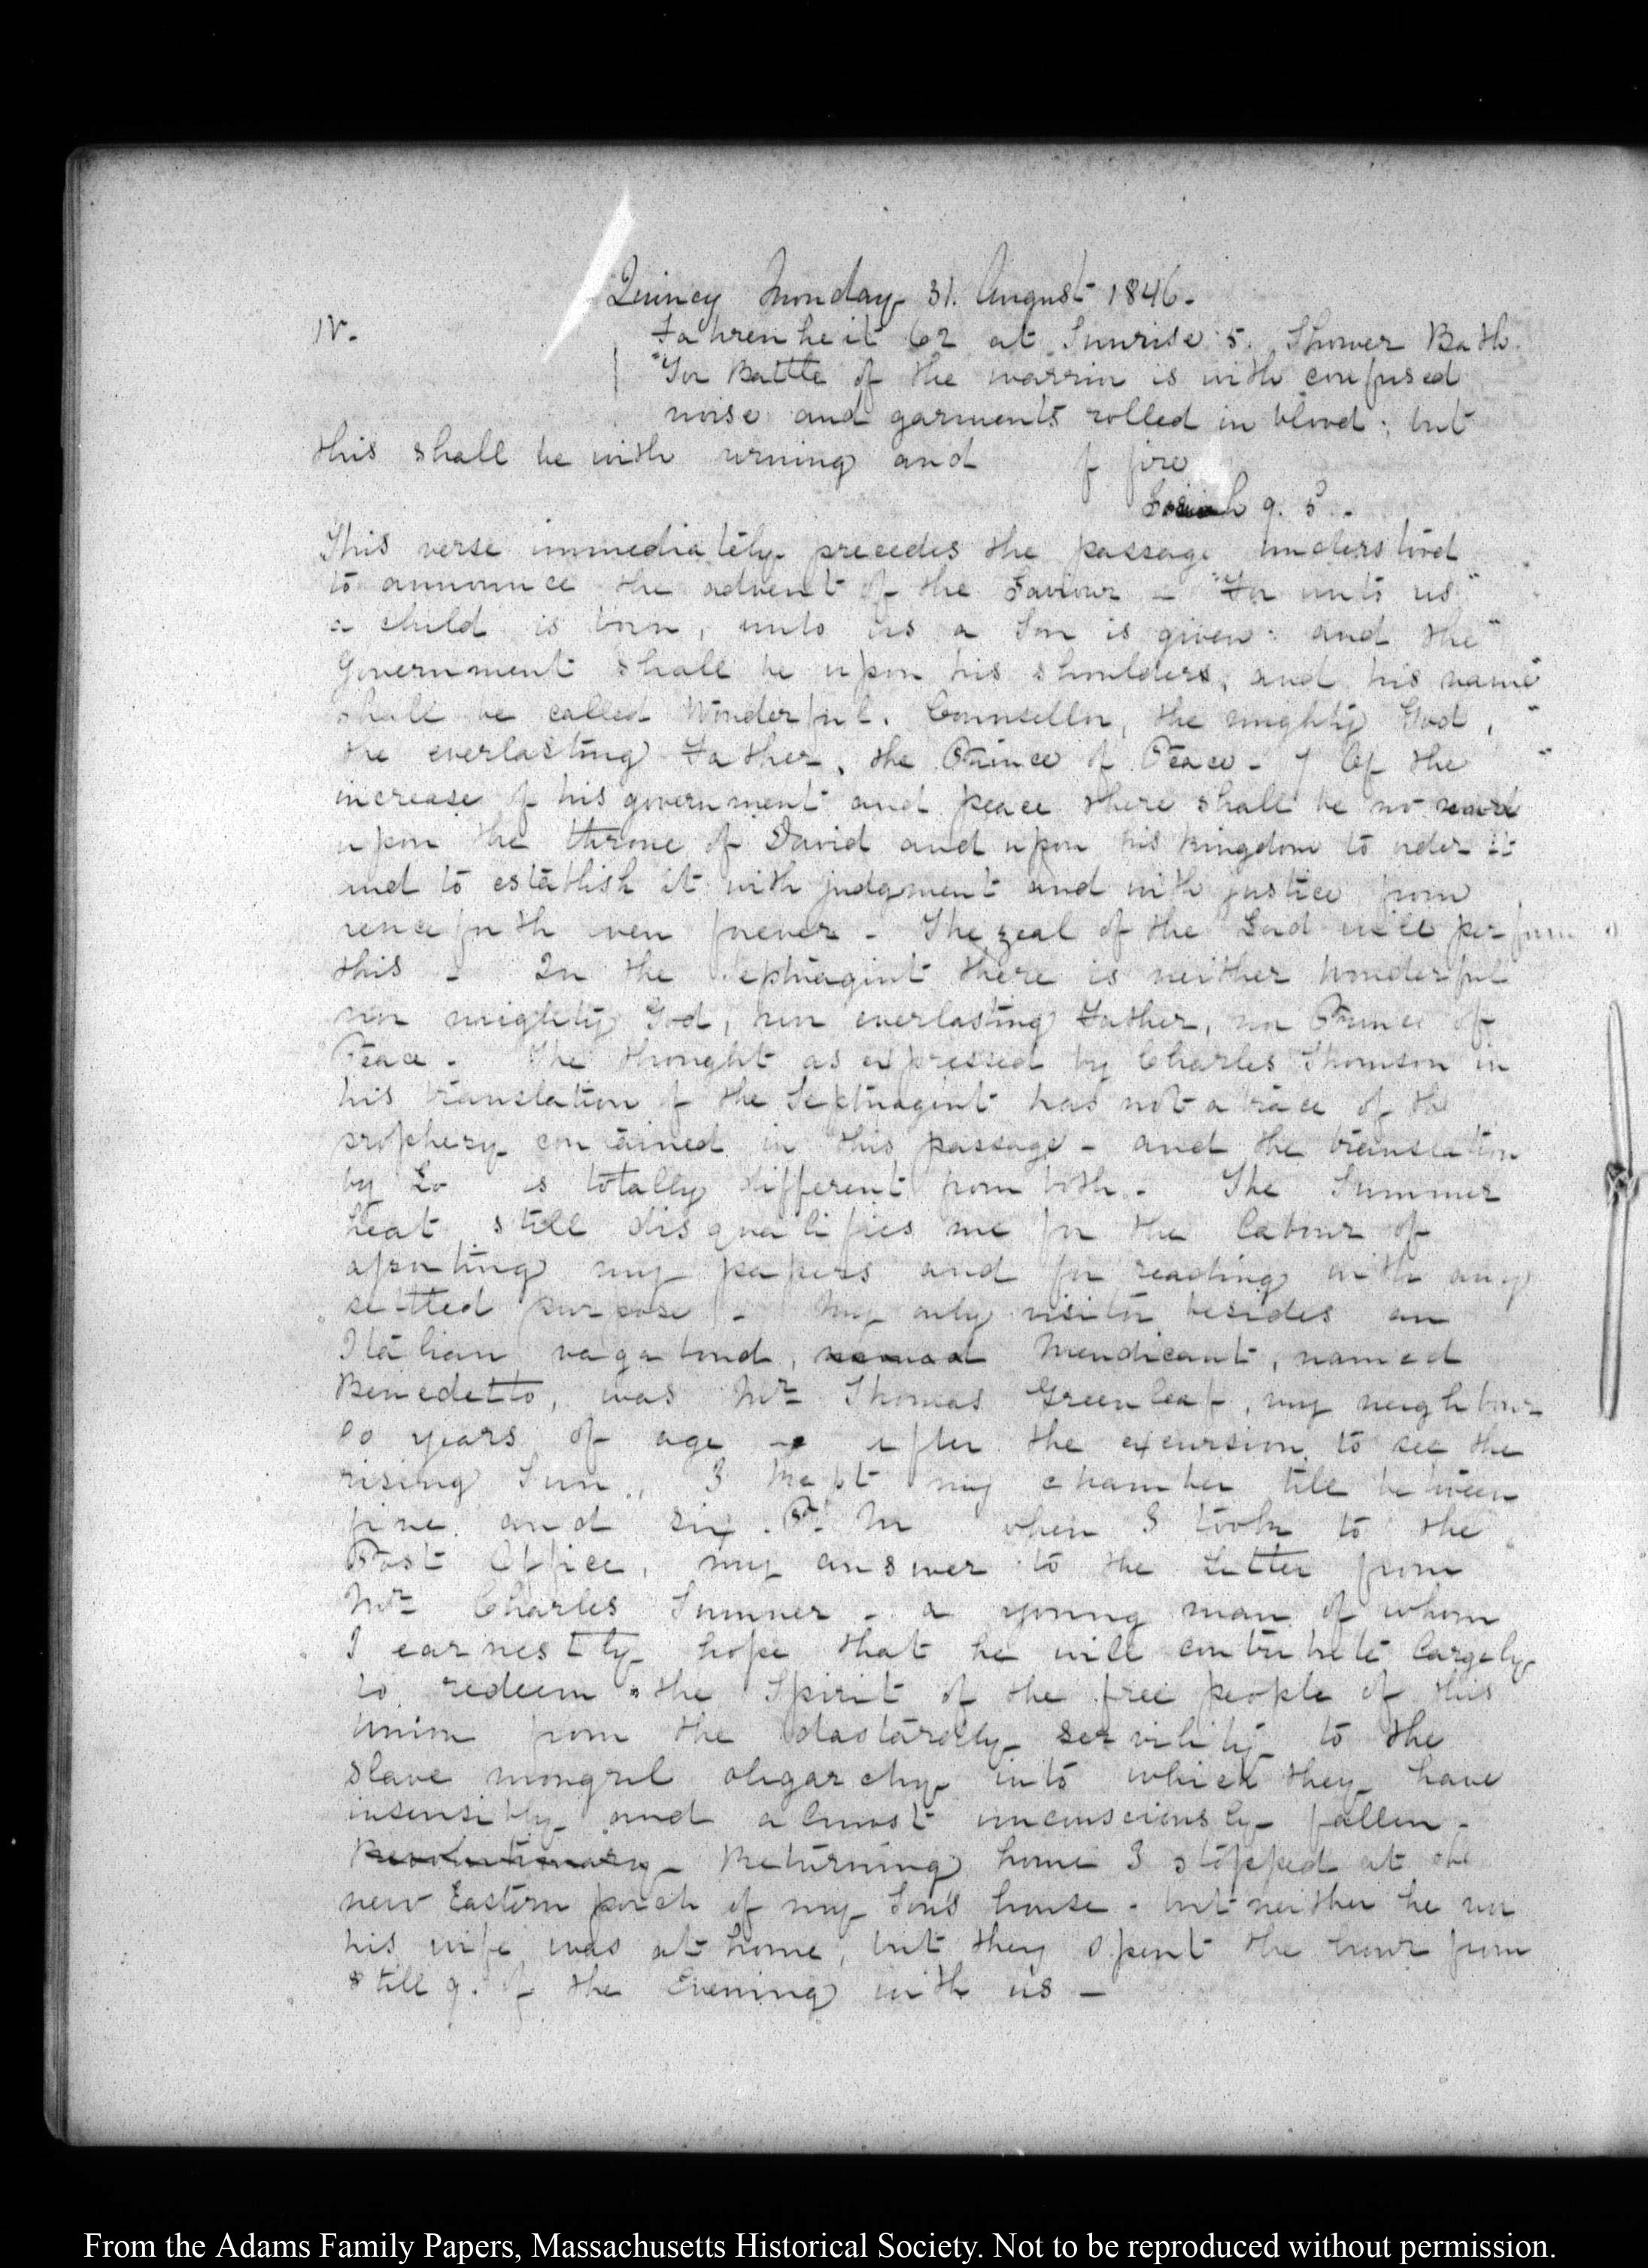 Quincy Monday 31. August 1846.
IV.
Fahrenheit 62 at Sunrise 5. Shower Bath.
"For Battle of the warrior is with confused
noise and garments rolled in blood; but
this shall be with urning and f fire
Isaiah 9. 5.
This verse immediately precedes the passage understood
to announce the advent of the Saviour - "For unto us"
a child is born, unto us a Son is given: and the"
Government shall be upon his shoulders, and his name"
shall be called Wonderful. Counsellor, the mighty God,"
the everlasting Father, the Prince of Peace - 7 Of the"
increase of his government and peace there shall be no
upon the throne of David and upon his kingdom to order it
and to establish it with judgment and with justice from
henceforth even forever - The zeal of the Lord will perform
this - In the Septuagint there is neither wonderful
nor mighty God, nor everlasting Father, nor Prince of
Peace. The thought as expressed by Charles Thomson in
his translation of the Septuagint has not a trace of the
prophecy contained in this passage - and the translation
by Lo is totally different from both. - The Summer
heat still disqualifies me for the labour of
assorting my papers and for reading with any
settled purpose - My only visitor besides an
Italian vagabond, Mendicant, named
Benedetto, was Mr Thomas Greenleaf, my neighbour
80 years of age after the excursion to see the
rising Sun, I kept my chamber till between
five and six P.M when I took to the
Post Office, my answer to the Letter from
Mr Charles Sumner - a young man of whom
I earnestly hope that he will contribute largely
to redeem the Spirit of the free people of this
Union from the dastardly servility to the
slave mongrel oligarchy into which they have
insensibly and almost unconsciously fallen -
Revolutionary - Returning home I stopped at the
new Eastern porch of my Son's house - but neither he nor
his wife was at home, but they spent the hour from
8 till 9. of the Evening with us -
From the Adams Family Papers, Massachusetts Historical Society. Not to be reproduced without permission.